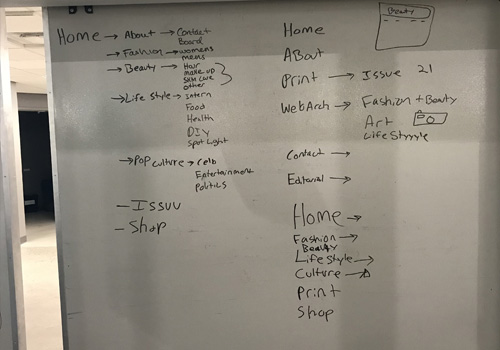 Home → About → Contact
Board
→ Fashion → womens
mens
→ Beauty → Hair
make up
Skin care
other
→ Life Style → Intern
Food
Health
DIY
Spot Light
→ POP culture → Celb
Entertainment
Politics
- Issuu
- Shop
Home
ABout
Print → Issue 21
WebArch → Fashion + Beauty
Art
Life Styyyle
Contact →
Editorial →
Beauty
Home →
Fashion →
Beauty
Life Style →
Culture →
Print
Shop